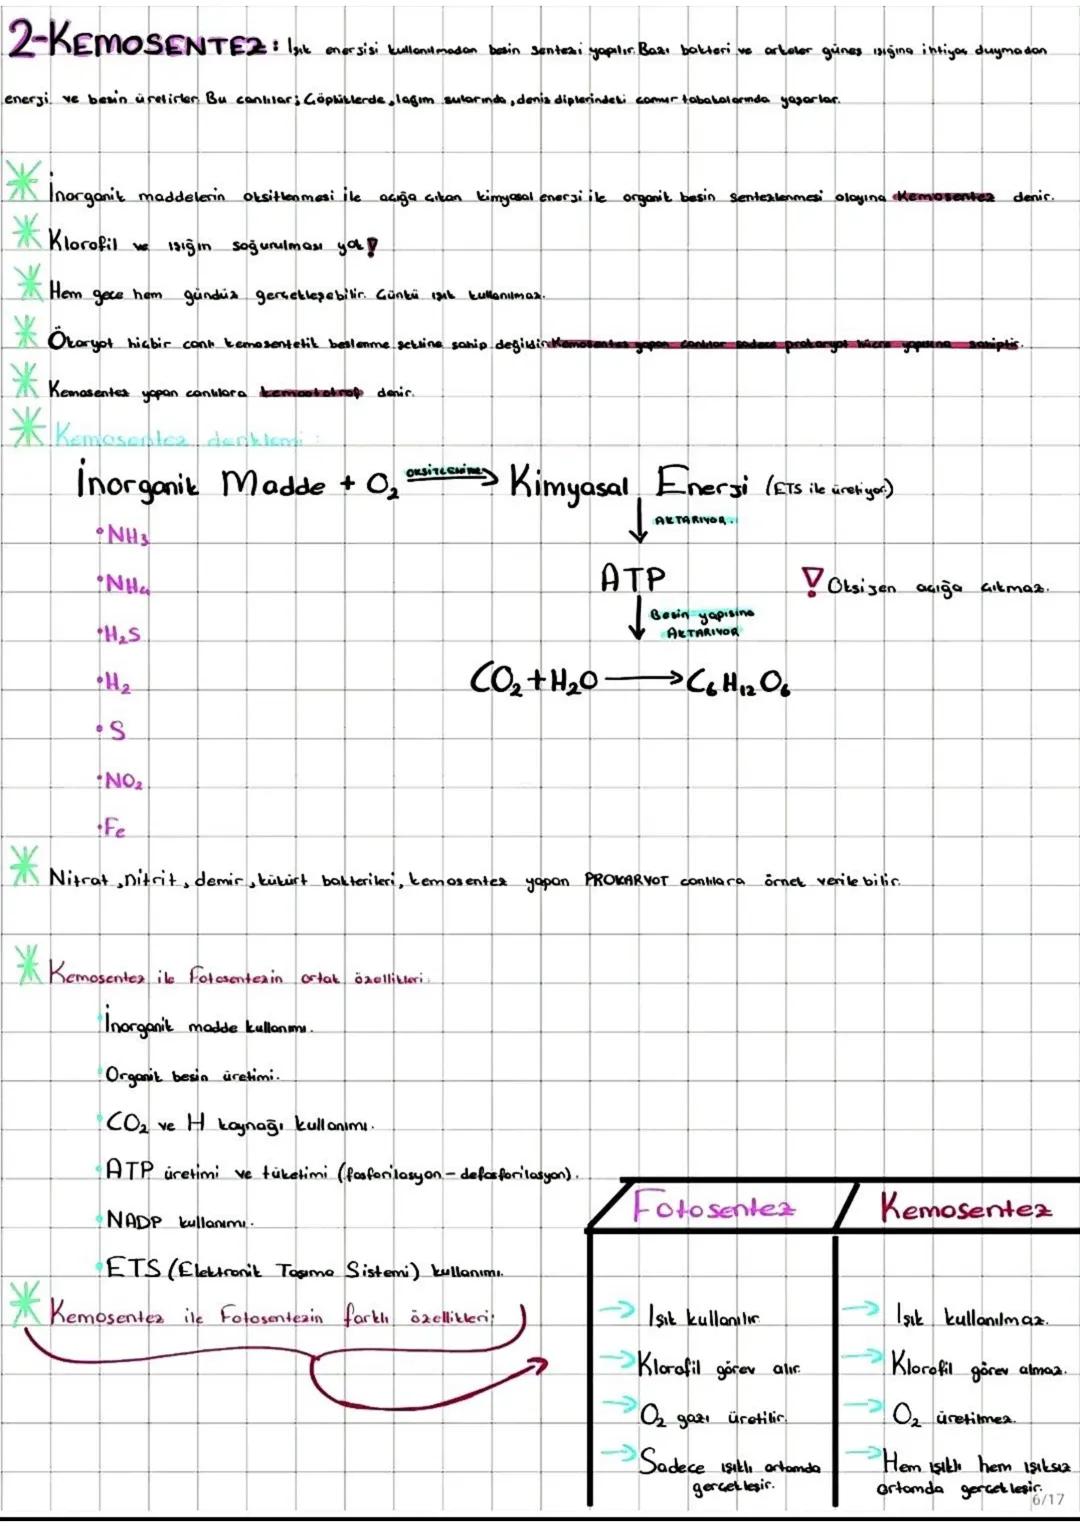 2-KEMOSENTEZ: Işık enerjisi kullanılmadan besin sentezi yapılır. Bazı bakteri ve arkeler güneş ışığına ihtiyaç duymadan
enerji ve besin üretirler. Bu canlılar; Çöplüklerde, lağım sularında, deniz diplerindeki çamur tabakalarında yaşarlar.
İnorganik maddelerin oksitlenmesi ile açığa çıkan kimyasal enerji ile organik besin sentezlenmesi olayına Kemosentez denir.
Klorofil ve ışığın soğurulması yok!
Hem gece hem gündüz gerçekleşebilir. Çünkü ışık kullanılmaz.
Ökaryot hiçbir canlı kemosentetik beslenme şekline sahip değildir. Kemosentez yapan canlılar sadece prokaryot hücre yapısına sahiptir.
Kemosentez yapan canlılara kemoototrof denir.
Kemosentez denklemi:
İnorganik Madde + O₂ OKSİTLENME → Kimyasal Enerji (ETS ile üretiyor)
AKTARIYOR.
•NH₃
•NH₄
ATP
! Oksijen açığa çıkmaz.
Besin yapısına
AKTARIYOR
•H₂S
•H₂
CO₂+H₂O → C₆H₁₂O₆
•S
•NO₂
•Fe
Nitrat, nitrit, demir, kükürt bakterileri, kemosentez yapan PROKARYOT canlılara örnek verilebilir.
Kemosentez ile Fotosentezin ortak özellikleri:
•İnorganik madde kullanımı.
•Organik besin üretimi.
•CO₂ ve H kaynağı kullanımı.
•ATP üretimi ve tüketimi (fosforilasyon-defosforilasyon).
•NADP kullanımı.
•ETS (Elektronik Taşıma Sistemi) kullanımı.
Kemosentez ile Fotosentezin farklı özellikleri;
Fotosentez
→ Işık kullanılır
→ Klorofil görev alır.
→ O₂ gazı üretilir.
→ Sadece ışıklı ortamda
gerçekleşir.
Kemosentez
→ Işık kullanılmaz.
→ Klorofil görev almaz.
→ O₂ üretilmez.
→ Hem ışıklı hem ışıksız
ortamda gerçekleşir.
6/17